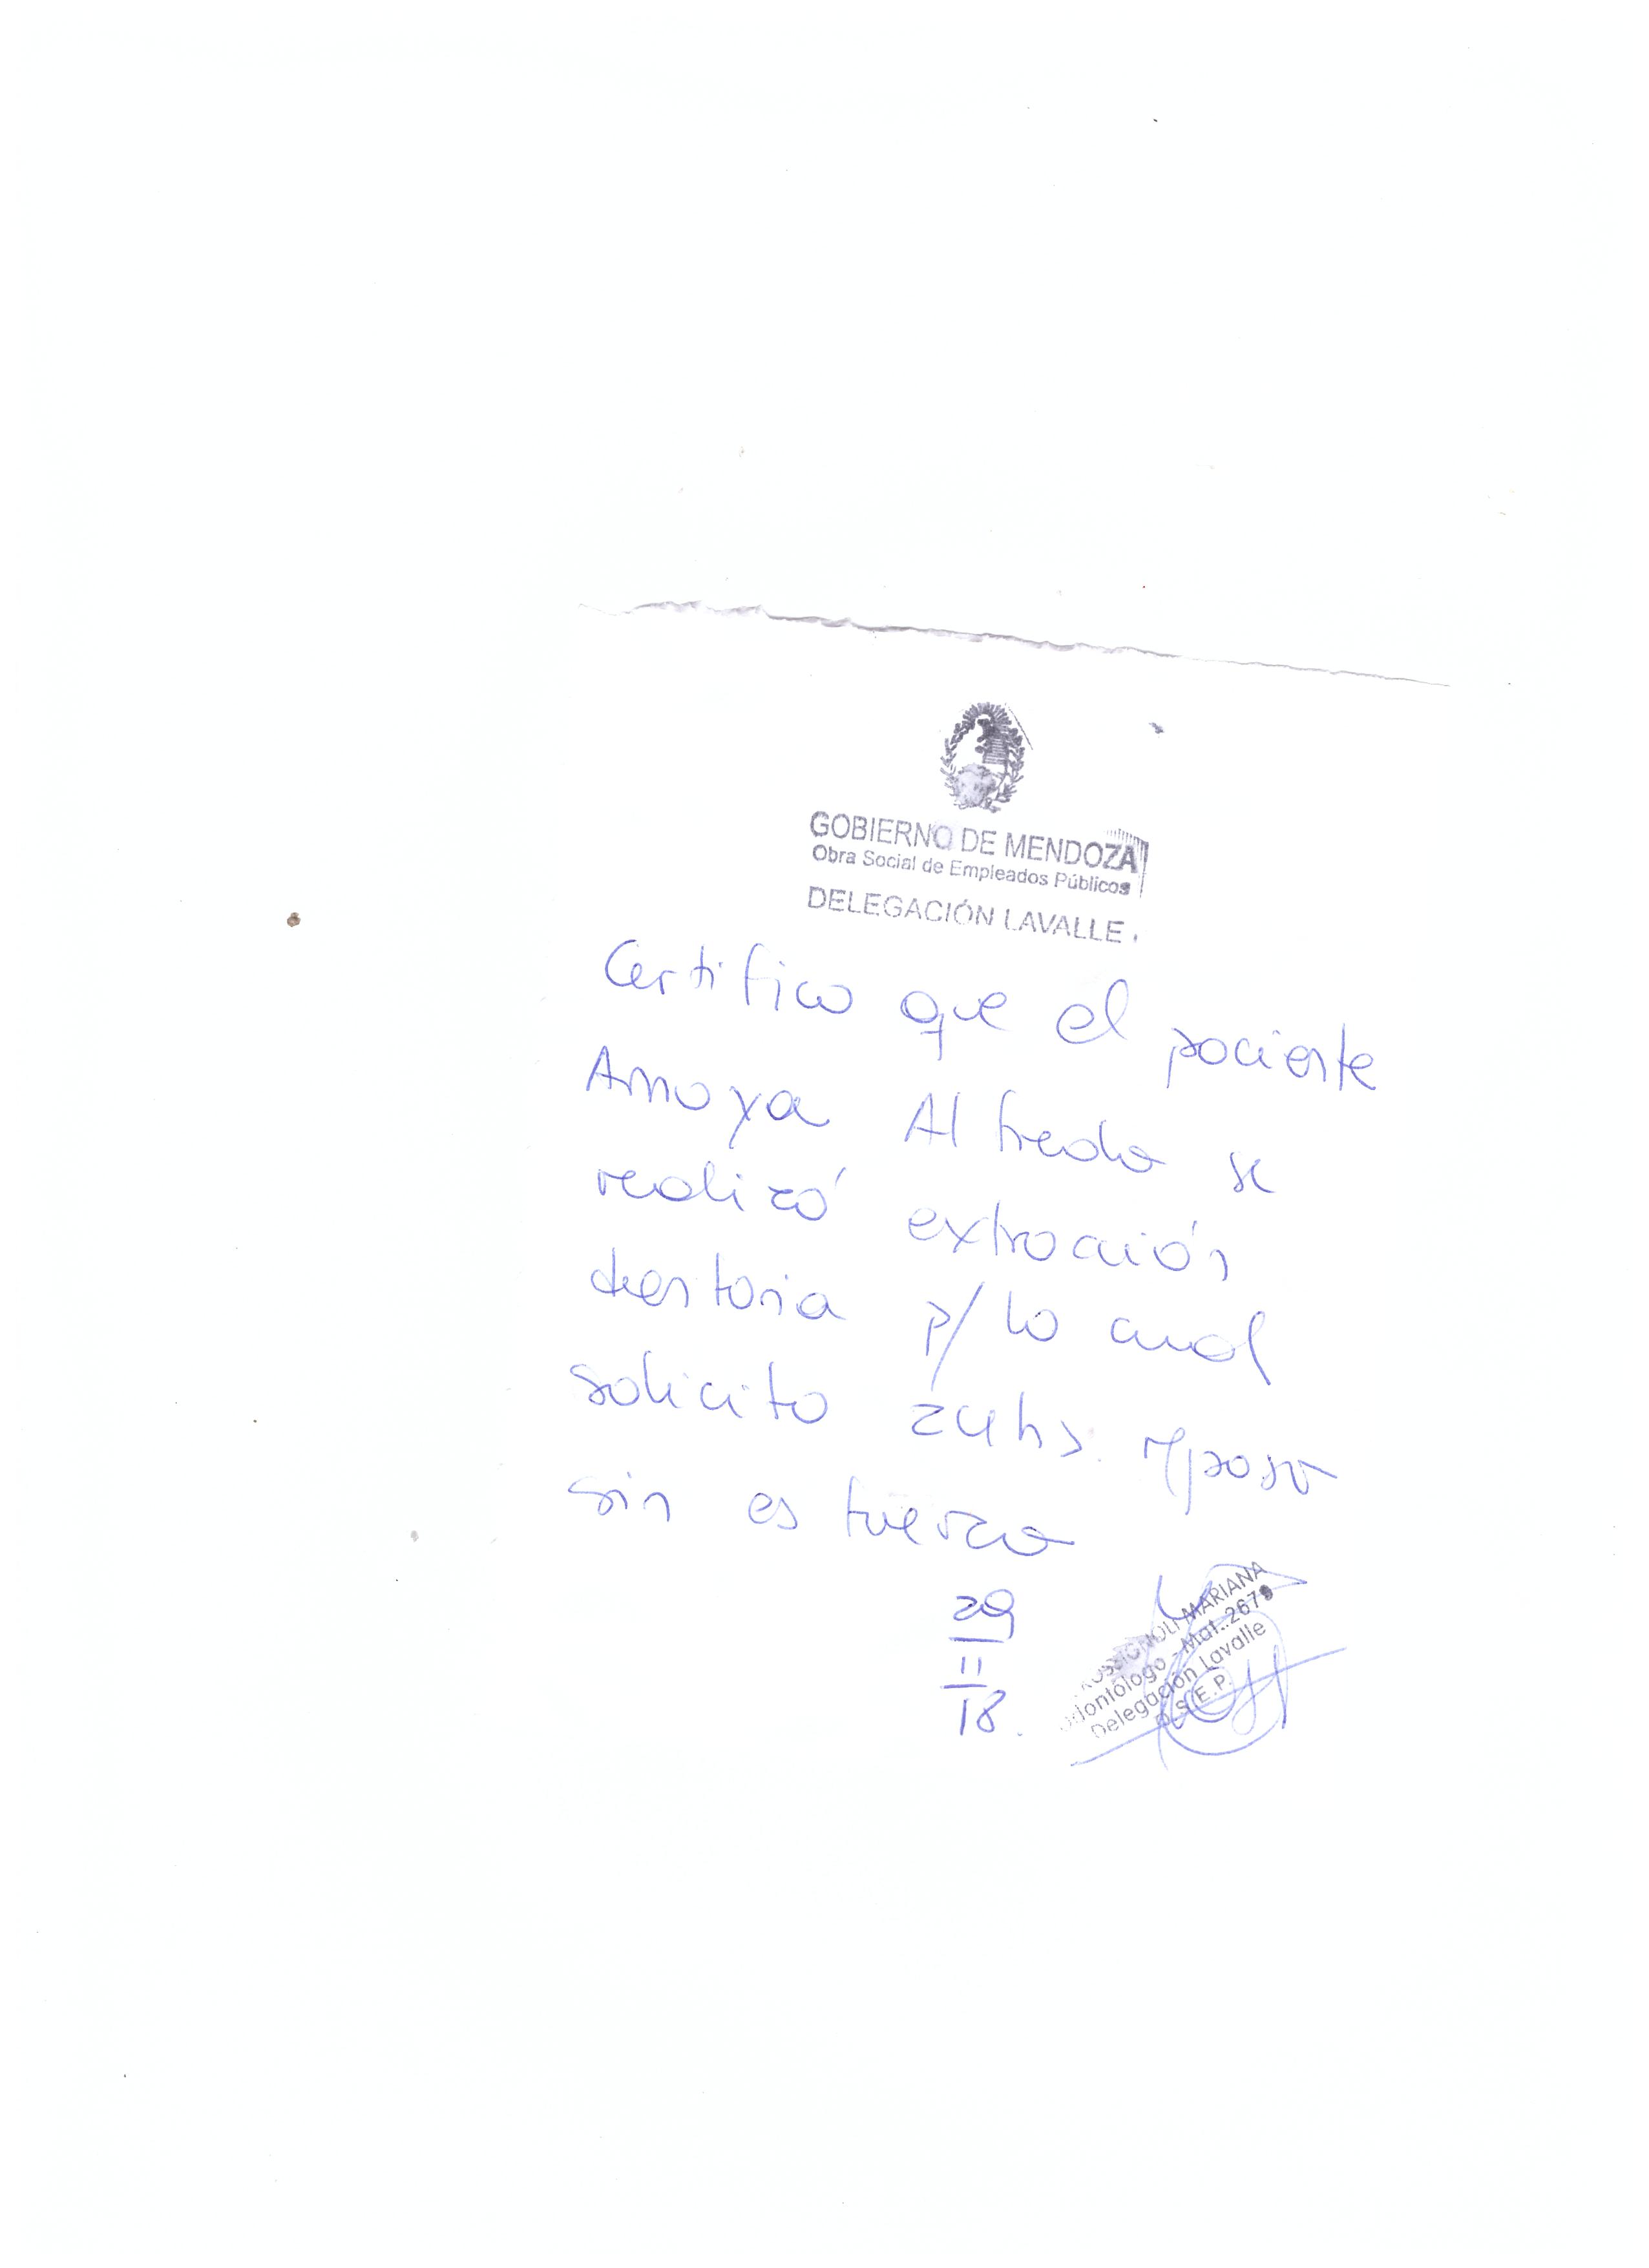 GOBIERNO DE MENDOZA
Obra Social de Empleados Públicos
DELEGACIÓN LAVALLE
Certifico que el paciente
Amoya Alfredo se
realizó extracción
dentaria p/lo cual
solicito 24hs. reposo
sin esfuerzo
29
11
18.
MARIANA
Odontólogo - Mat.: 2679
Delegación Lavalle
O.S.E.P.